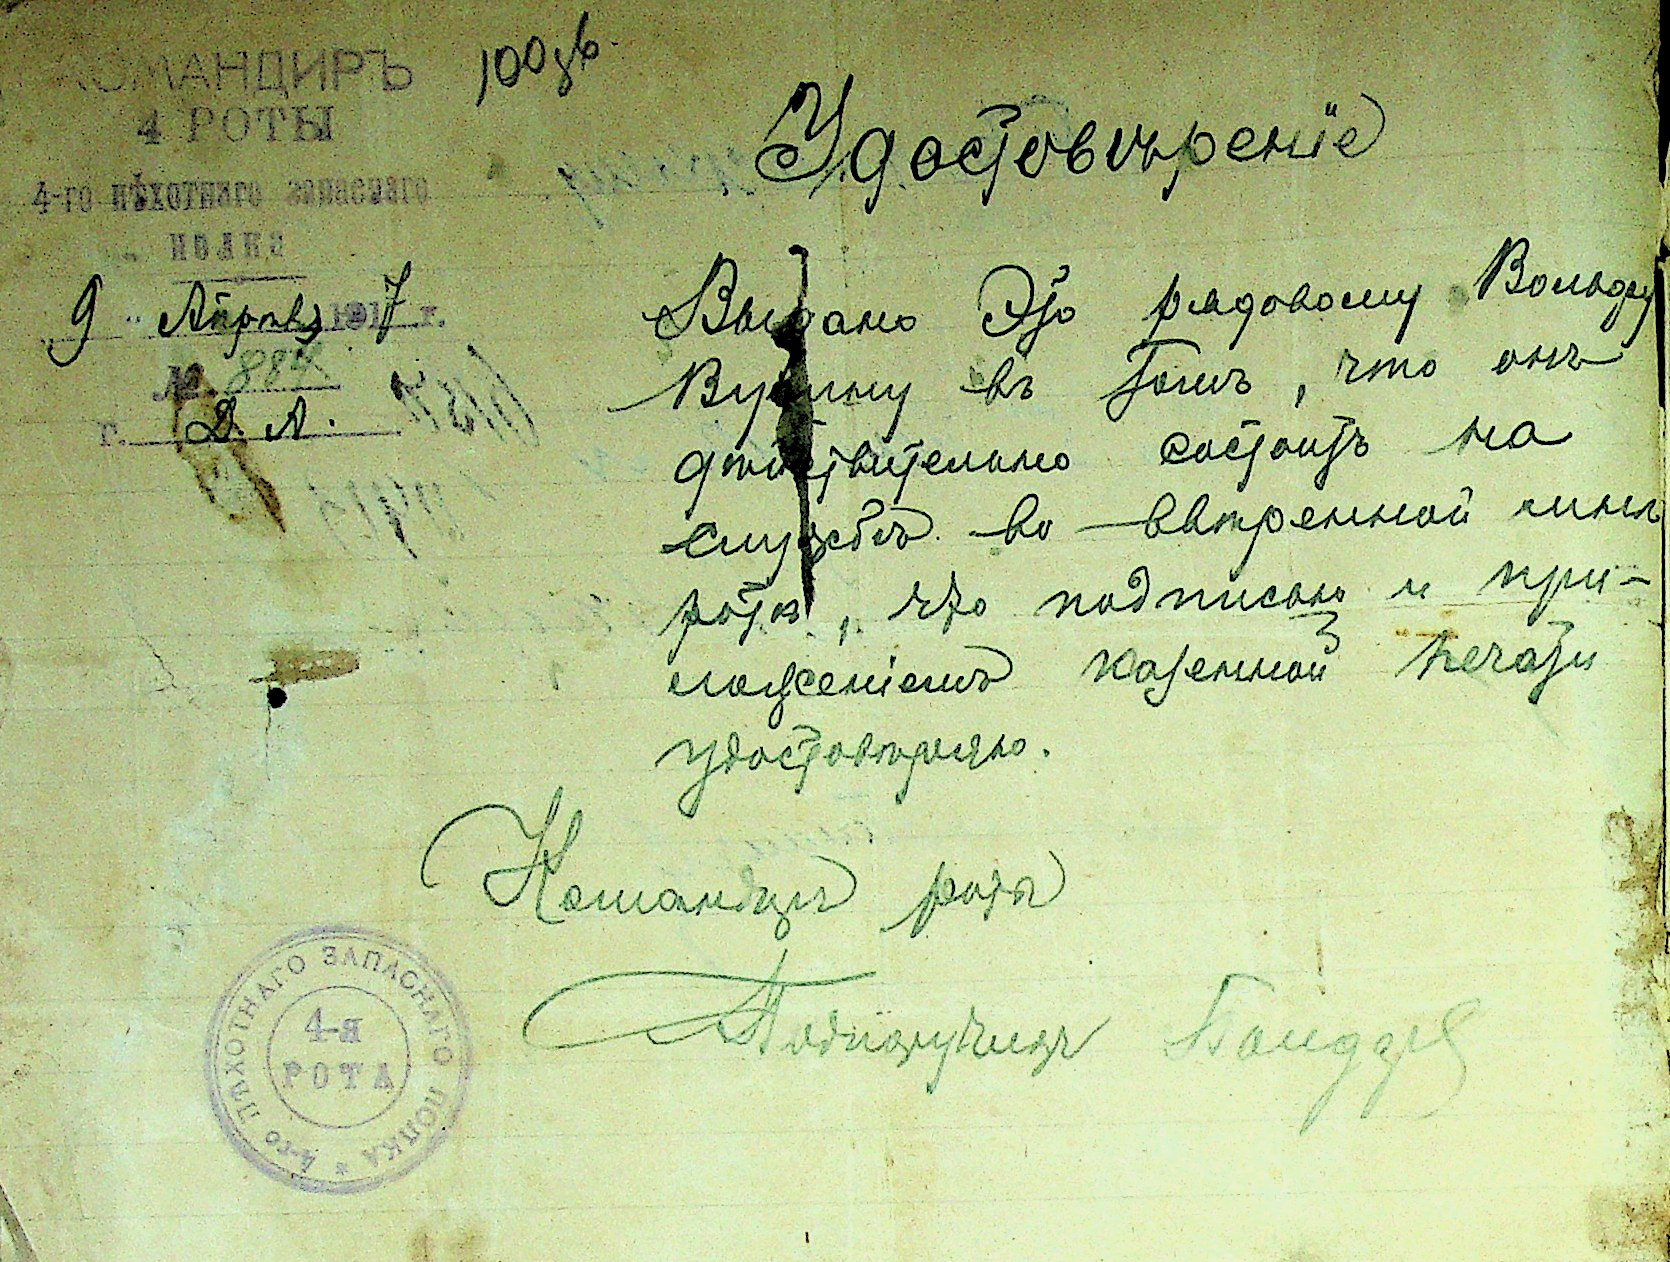 КОМАНДИРЪ
4 РОТЫ
4-го пѣхотнаго запаснаго
полка
9 Апрѣля 1917 г.
№ 884
г. Д. А.
Удостовѣрение
Выдано Это рядовому
въ томъ, что онъ
дѣйствительно состоитъ на
службѣ во ввѣренной мнѣ
ротѣ, что подписью и при-
ложеніемъ казенной печати
удостовѣряю.
Командиръ роты
Подпоручикъ
4-го ПѢХОТНАГО ЗАПАСНАГО ПОЛКА *
4-я
РОТА